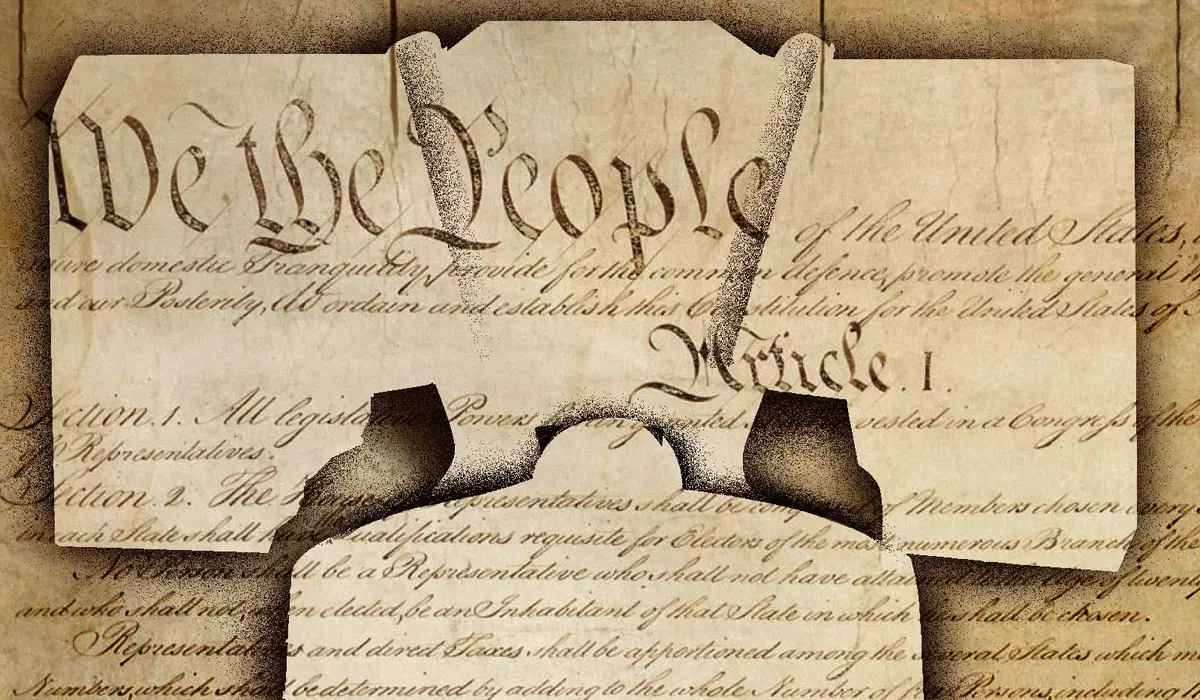 We the People
of the United States,
domestic Tranquility, provide for the common defence, promote the general
and our Posterity, do ordain and establish this Constitution for the United States of
Article. I.
Section. 1. All legislative Powers granted vested in a Congress of the
Representatives.
Section. 2. The House Representatives shall be of Members chosen every
in each State shall have Qualifications requisite for Electors of the most numerous Branch of the
No Person shall be a Representative who shall not have attained the Age of twenty
and who shall not, when elected, be an Inhabitant of that State in which he shall be chosen.
Representatives and direct Taxes shall be apportioned among the several States which
Numbers, which shall be determined by adding to the whole Number of Persons, including